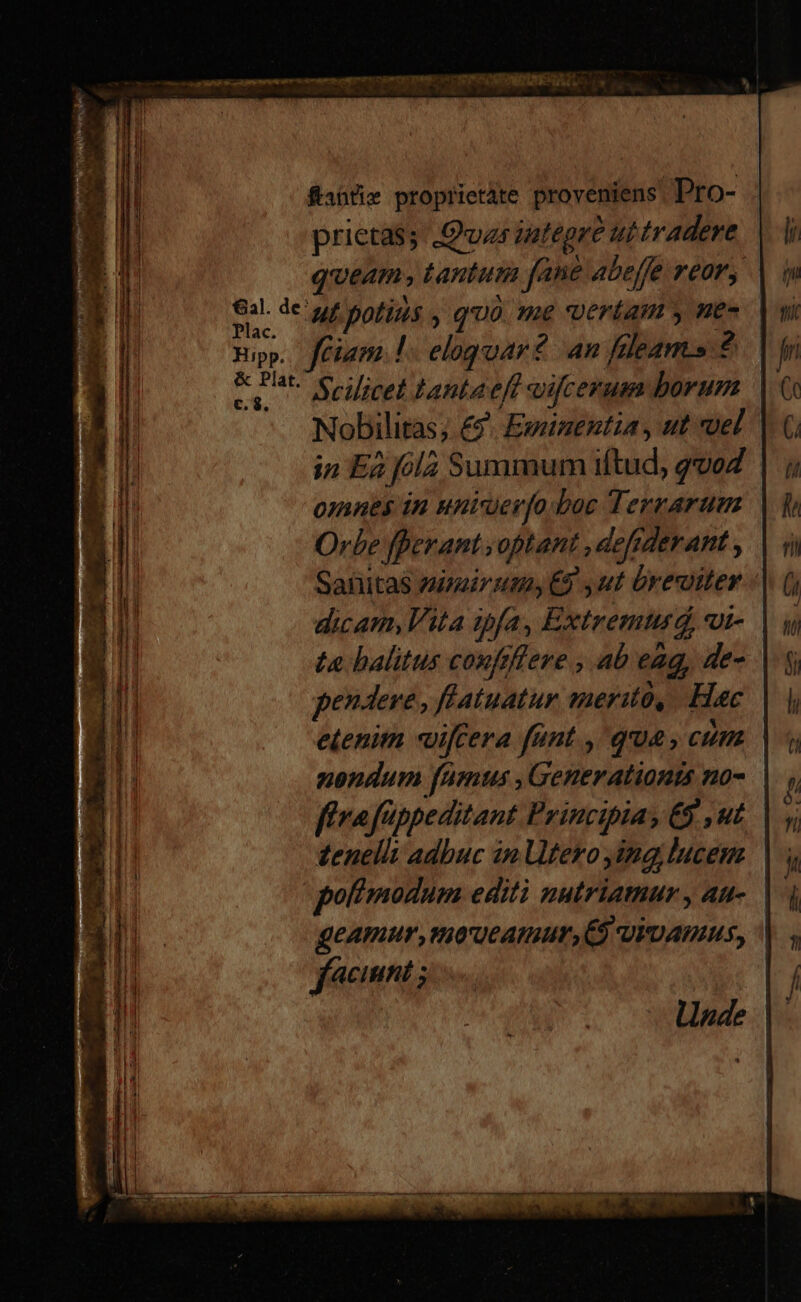 ſtantiæ proprietâte proveniens Pro-
prietas; Quas integrè ut tradere
queam, tantum ſanè abeſſe reor,
ut potiùs, quò me vertam, ne-
ſciam!. eloquar? an ſileam? 
Scilicet tanta eſt viſcerum horum
Nobilitas, & Eminentia, ut vel
in Eâ ſolâ Summum iſtud, quod
omnes in univerſo hoc Terrarum
Orbe ſperant, optant, deſiderant,
Sanitas nimirum, & , ut breviter
dicam, Vita ipſa, Extremusq́, vi-
tæ halitus conſiſtere, ab eâq, de-
pendere, ſtatuatur meritò, Hæc
etenim viſcera ſunt, quæ, cùm
nondum ſumus, Generationis no-
ſtræ ſuppeditant Principia, & , ut
tenelli adhuc in Utero, inq, lucem
poſtmodum editi nutriamur, au-
geamur, moveamur, & vivamus,
faciunt;
Unde
Gal. de
Plac.
Hipp.
& Plat.
c. 8.